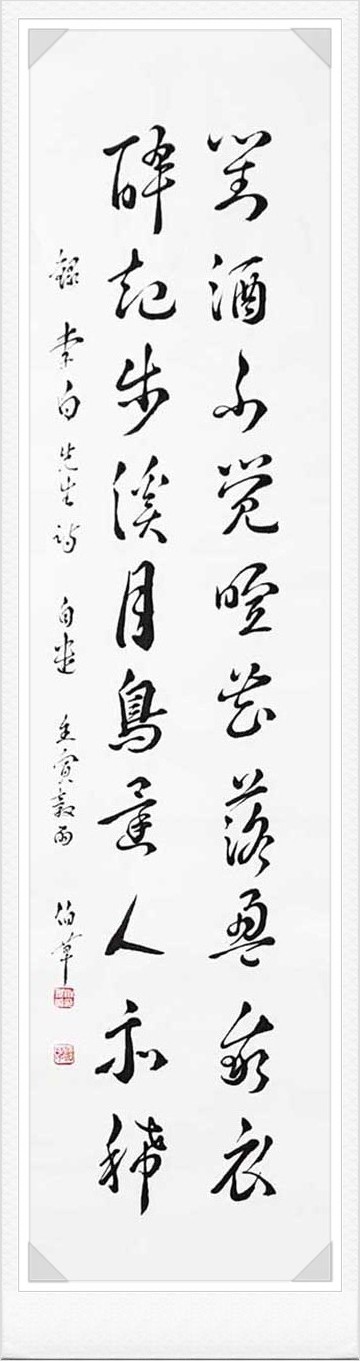 對酒不覺暝花落盈我衣
醉起步溪月鳥還人亦稀
錄 李白先生詩 自遣 壬寅穀雨